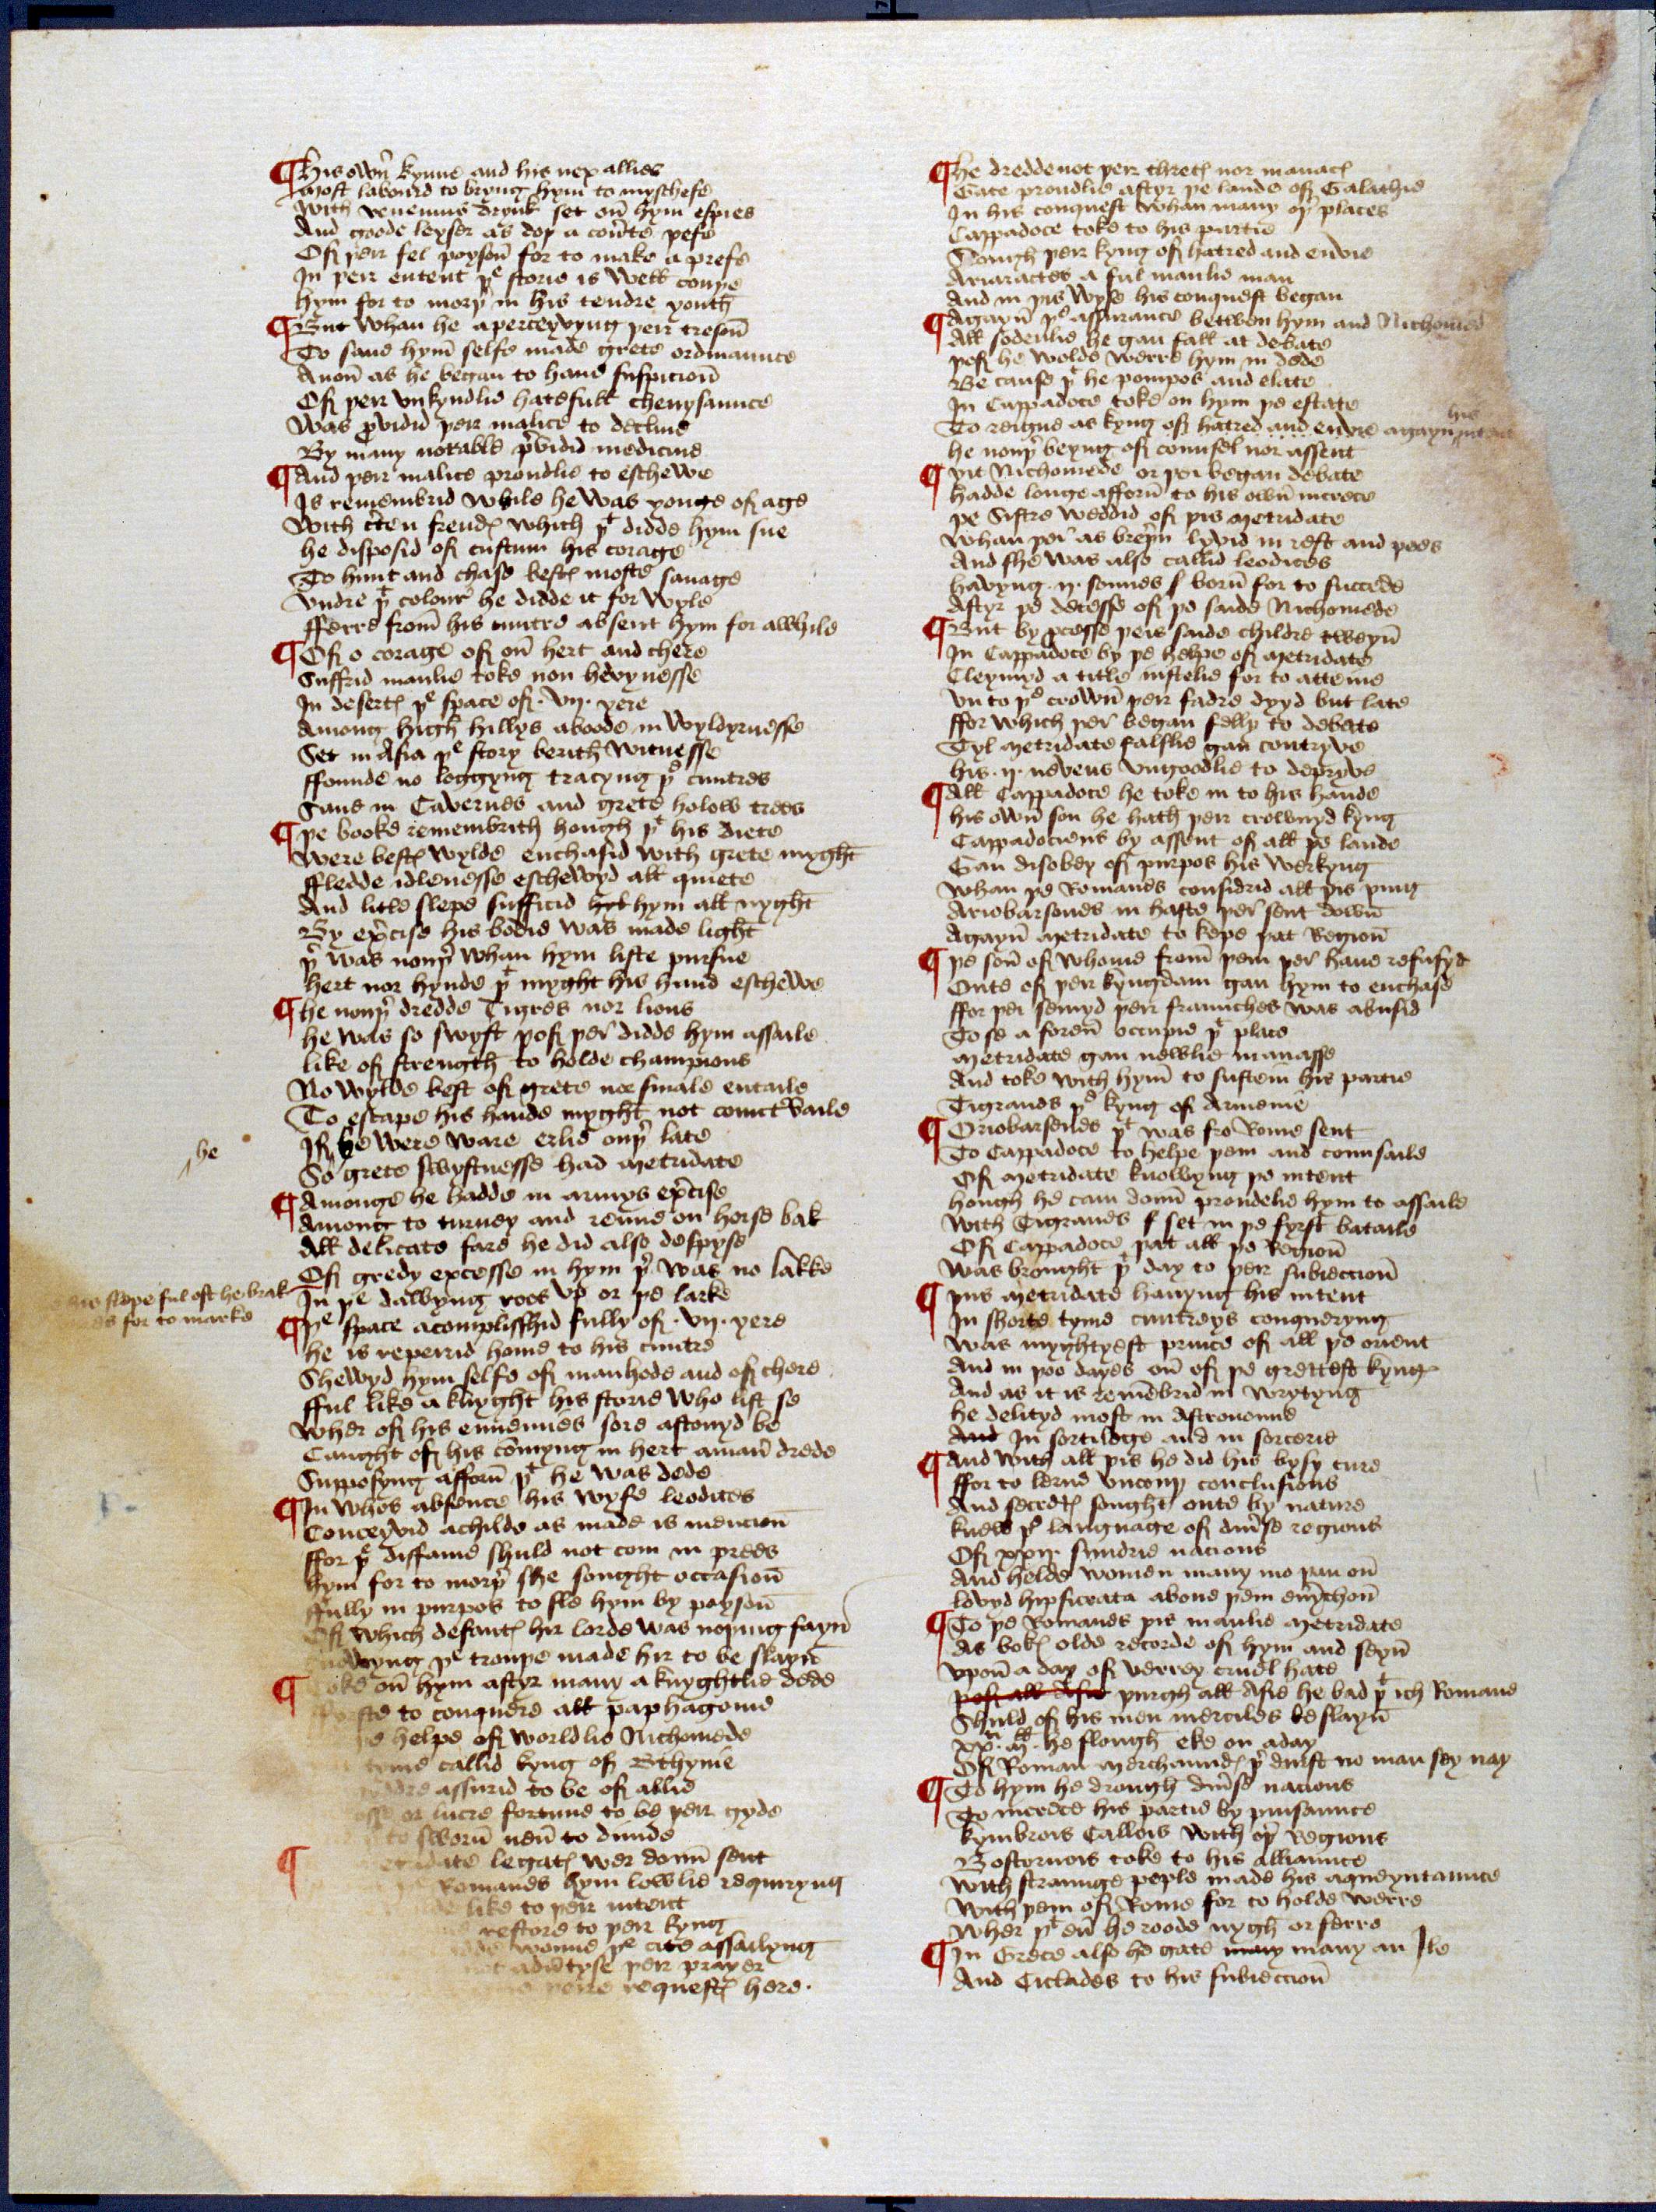 ¶ His own̄ kynne and his nex allies
Most labourd to bryng hym to myschefe
With venemus drynk set on̄ hym espies
And goode leyser as doþ a cou͛te þefe
Of þeir fel poyson̄ for to make a prefe
In þeir entent þᵉ storie is well couþe
Hym for to morþ͛ in his tendre youth
¶ But whan he aperceyvyng þeir treson̄
To saue hym̄ selfe made grete ordinaunce
Anon̄ as he began to haue suspicion̄
Of þeir vnkyndlie hatefull chevysaunce
Was p͛vidid þeir malice to decline
By many notable p͛vidid medicine
¶ And þeir malice proudlie to eschewe
Is remembrid while he was yonge of age
With c͛ten frendꝭ which þᵗ didde hym sue
he disposid of custum his corage
To hunt and chase bestꝭ moste sauage
Vndre þᵗ colour he didde it for wyle
fferre from̄ his cuntre absent hym for awhile
¶ Of o corage of on̄ hert and chere
Suffrid manlie toke non hevynesse
In desertꝭ þᵉ space of .vij. yere
Among high hillys aboode in wyldyrnesse
Set in Asia þᵉ story berith witnesse
ffounde no loggyng tracyng þᵉ cuntres
Saue in Cavernes and grete holow trees
¶ þe booke remembrith hough þᵗ his diete
Were bestꝭ wylde enchasid with grete myght
ffledde idlenesse eschewyd all quiete
And litle slepe sufficid hyt hym all nyght
By ex͛cise his bodie was made light
þ͛ was nonþ͛ whan hym liste pursue
hert nor hynde þᵗ myght his hand eschewe
¶ he nonþ͛ dredde Tigres nor lions
he was so swyft þof þer didde hym assaile
like of strength to holde champions
No wylde best of grete nee smale entaile
To escape his hande myght not countͬvaile
If he were ware erlie onþ͛ late
he
So grete swyftnesse had Metridate
¶ Amonge he hadde in armys ex͛cise
Among to turney and renne on horse bak
All delicate fare he did also despyse
Of gredy excesse in hym þ͛ was no lakke
slepe ful oft he brak
for to marke
In þᵉ dawyng roos vp or þe larke
¶ þᵉ space acomplisshid fully of .vij. yere
he is repeirid home to his cuntre
Shewyd hym selfe of manhode and of chere
fful like a knyght his storie who list se
Wher of his ennemies sore astonyd be
Caught of his cōmyng in hert aman͛ drede
Supposyng afforn̄ þᵗ he was dede
¶ In whos absence his wyfe leodices
Conceyvid achilde as made is mencion̄
ffor þᵉ diffame shuld not com in prees
hym for to morþ͛ she sought occasion̄
ffully in purpos to sle hym by poyson̄
Of which defautꝭ hir lorde was noþing fayn̄
þᵉ trouþe made hir to be slayn̄
¶ on̄ hym aftyr many a knyghtlie dede
to conquere all paphagonie
helpe of worldlie Nichomede
callid kyng of Bithynie
assurid to be of allie
or lucre fortune to be þeir gyde
sworn̄ neu͛ to diuide
¶ legatꝭ wer doun̄ sent
Romanes hym lowlie requiryng
like to þeir intent
restore to þeir kyng
wonne þᵉ cite assailyng
adu͛tyse þeir prayer
requestꝭ here.
¶ he dredde not þeir thretꝭ nor manacꝭ
Gate proudlie aftyr þe lande of Galathie
In his conquest whan many oþ͛ places
Cappadoce toke to his partie
Slough þeir kyng of hatred and envie
Ariaractes a ful manlie man
And in þis wyse his conquest began
¶ Agayn̄ þᵉ assurance betwen hym and Nichomed
All sodenlie he gan fall at debate
þof he wolde werre hym in dede
Be cause þᵗ he pompos and elate
In Cappadoce toke on hym þe estate
To reigne as kyng of hatred and envie agayn his
he nonþ͛ beyng of counsel nor assent
¶ ȝit Nichomede or þei began debate
hadde longe afforn̄ to his own̄ increce
þe Siftre weddid of þis Metridate
Whan þei as breþ͛n lyvid in rest and pees
And she was also callid leodices
havyng .ij. sonnes born̄ for to succede
Aftyr þe decesse of þe saide Nichomede
¶ But by ꝓcesse þeis saide childre tweyn̄
In Cappadoce by þe helpe of Metridate
Cleymyd a title iustelie for to atteine
Vn to þᵉ crown̄ þeir fadre dyyd but late
ffor which þer began felly to debate
Tyl Metridate falslie gan contryve
his .ij. nevens vngoodlie to depryve
¶ All Cappadoce he toke in to his hande
his own̄ son he hath þeir crownyd kyng
Cappadociens by assent of all þe lande
Gan disobey of purpos his werkyng
Whan þe Romanes considrid all þis þing
Ariobarsones in haste þer sent down̄
Agayn̄ Metridate to kepe þat Region̄
¶ þe son̄ of whome from̄ þem þer haue refusyd
Oute of þeir kyngdam gan hym to enchase
ffor þei semyd þeir fraunches was abusid
To se a foren̄ occupie þᵗ place
Metridate gan newlie manasse
And toke with hym̄ to sustein his partie
Tigranes þᵉ kyng of Armenie
¶ Oriobarsenes þᵗ was fro Rome sent
To Cappadoce to helpe þem and counsaile
Of Metridate knowyng þe intent
hough he cam doun̄ proudelie hym to assaile
With Tigranes set in þe fyrst bataile
Of Cappadoce þat all þe Region̄
Was brought þᵗ day to þeir subieccion̄
¶ þus Metridate hauyng his intent
In shorte tyme cuntreys conqueryng
Was myghtyest prince of all þe orient
And in þoo dayes on̄ of þe grettest kyng
And as it is remēbrid in wrytyng
he delityd most in Astronomie
And In sortilege and in sorcerie
¶ And with all þis he did his bysy cure
ffor to lerne vncouþ conclusions
And secretꝭ sought oute by nature
knew þᵉ language of diu͛se regions
Of xxij. sundrie nacions
And helde women many mo þan on̄
lovyd hipsicrata aboue þem eu͛ychon̄
¶ To þe Romanes þis manlie Metridate
As bokꝭ olde recorde of hym and seyn̄
Vpon̄ a day of verrey cruel hate
þof all Asie þurgh all Asie he bad þᵗ ich Romane
Shuld of his men merciles be slayn̄
xxᵗⁱ. Mˡ. he slough eke on aday
Of Roman Merchaundꝭ þ͛ durst no man sey nay
¶ To hym he drough diu͛se nacions
To increce his partie by puisaunce
kymbrois Gallois with oþ͛ Regions
Bostornois toke to his alliaunce
With straunge people made his aqueyntaunce
With þem of Rome for to holde werre
Wher þᵗ eu͛ he roode nygh or ferre
¶ In Grece also he gate many many an Ile
And Ciclades to his subieccion̄